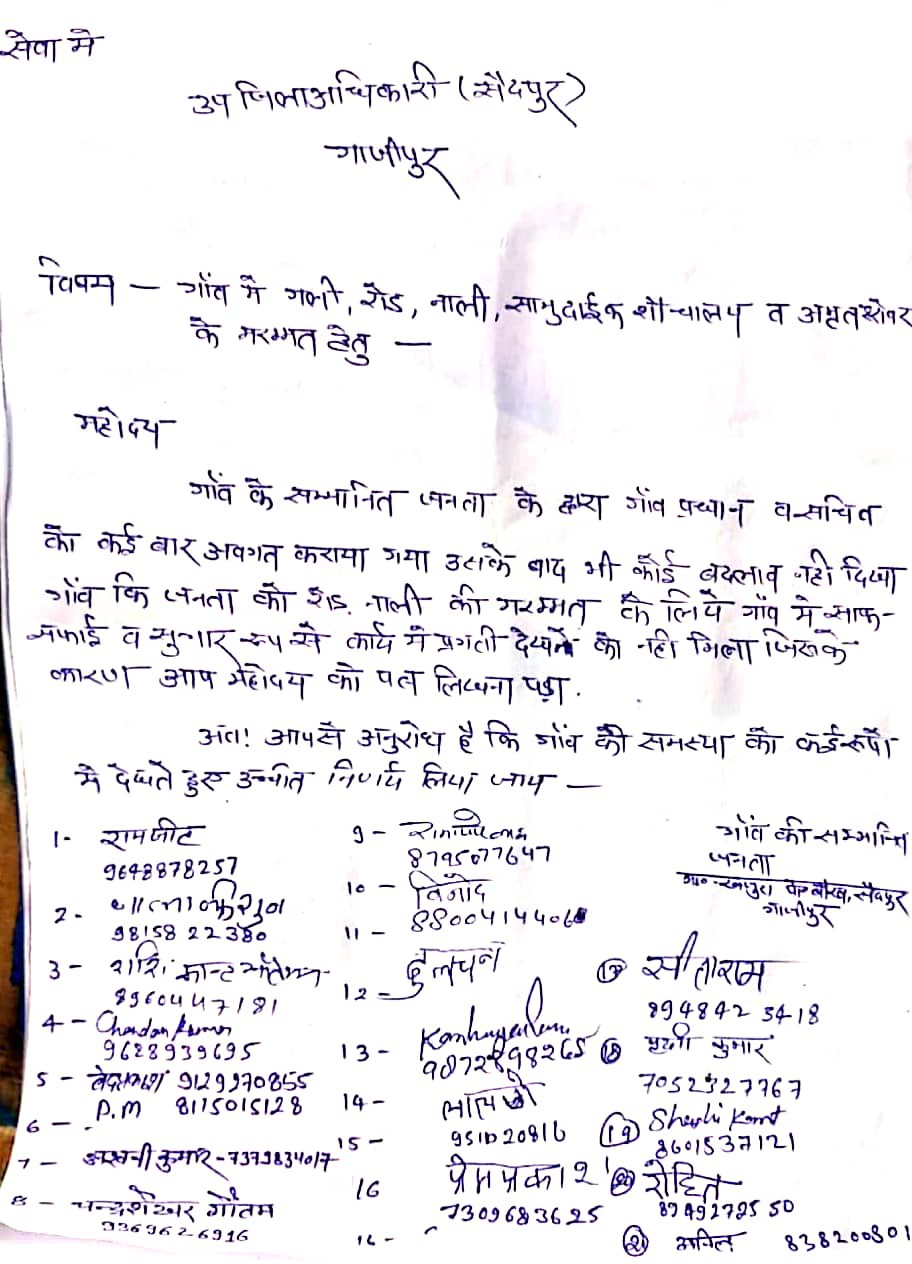 सेवा मे
उप जिलाअधिकारी (सैदपुर)
गाजीपुर
विषय — गाँव मे गली, रोड, नाली, सामुदाईक शौचालय व अमृतसरोवर
के मरम्मत हेतु —
महोदय
गाँव के सम्मानित जनता के द्वारा गाँव प्रधान व सचिव
को कई बार अवगत कराया गया उसके बाद भी कोई बदलाव नही दिखा
गाँव कि जनता को रोड. नाली की मरम्मत के लिये गाँव मे साफ-
सफाई व सुचार रूप से कार्य मे प्रगती देखने को नही मिला जिसके
कारण आप महोदय को पत्र लिखना पड़ा.
अंत! आपसे अनुरोध है कि गाँव की समस्या को कईरूपो
मे देखते हुए उच्चीत निर्णय लिया जाय —
1- रामजीत
9648878257
2-
98158 22380
3 - शशि कान्त
8960447181
4 - Chandan Kumar
9628939695
5 - 9129970855
P.M 8115015128
6 -
7 - अश्वनी कुमार - 7379834017
8 - चन्द्रशेखर गौतम
9369626916
9 -
8795077647
10 - विनोद
8800414406
11 -
12 -
13 - Kanhaya
9872898265
14 -
9510 20816
15 -
16 प्रेम प्रकाश
7309683625
16 -
गाँव की सम्मानित
जनता
सैदपुर
गाजीपुर
17 सीताराम
894842 3418
18 कुमार
7052327767
19 Shashi Kant
8601537121
20 रोहित
8949272550
21 अनिल 838200801